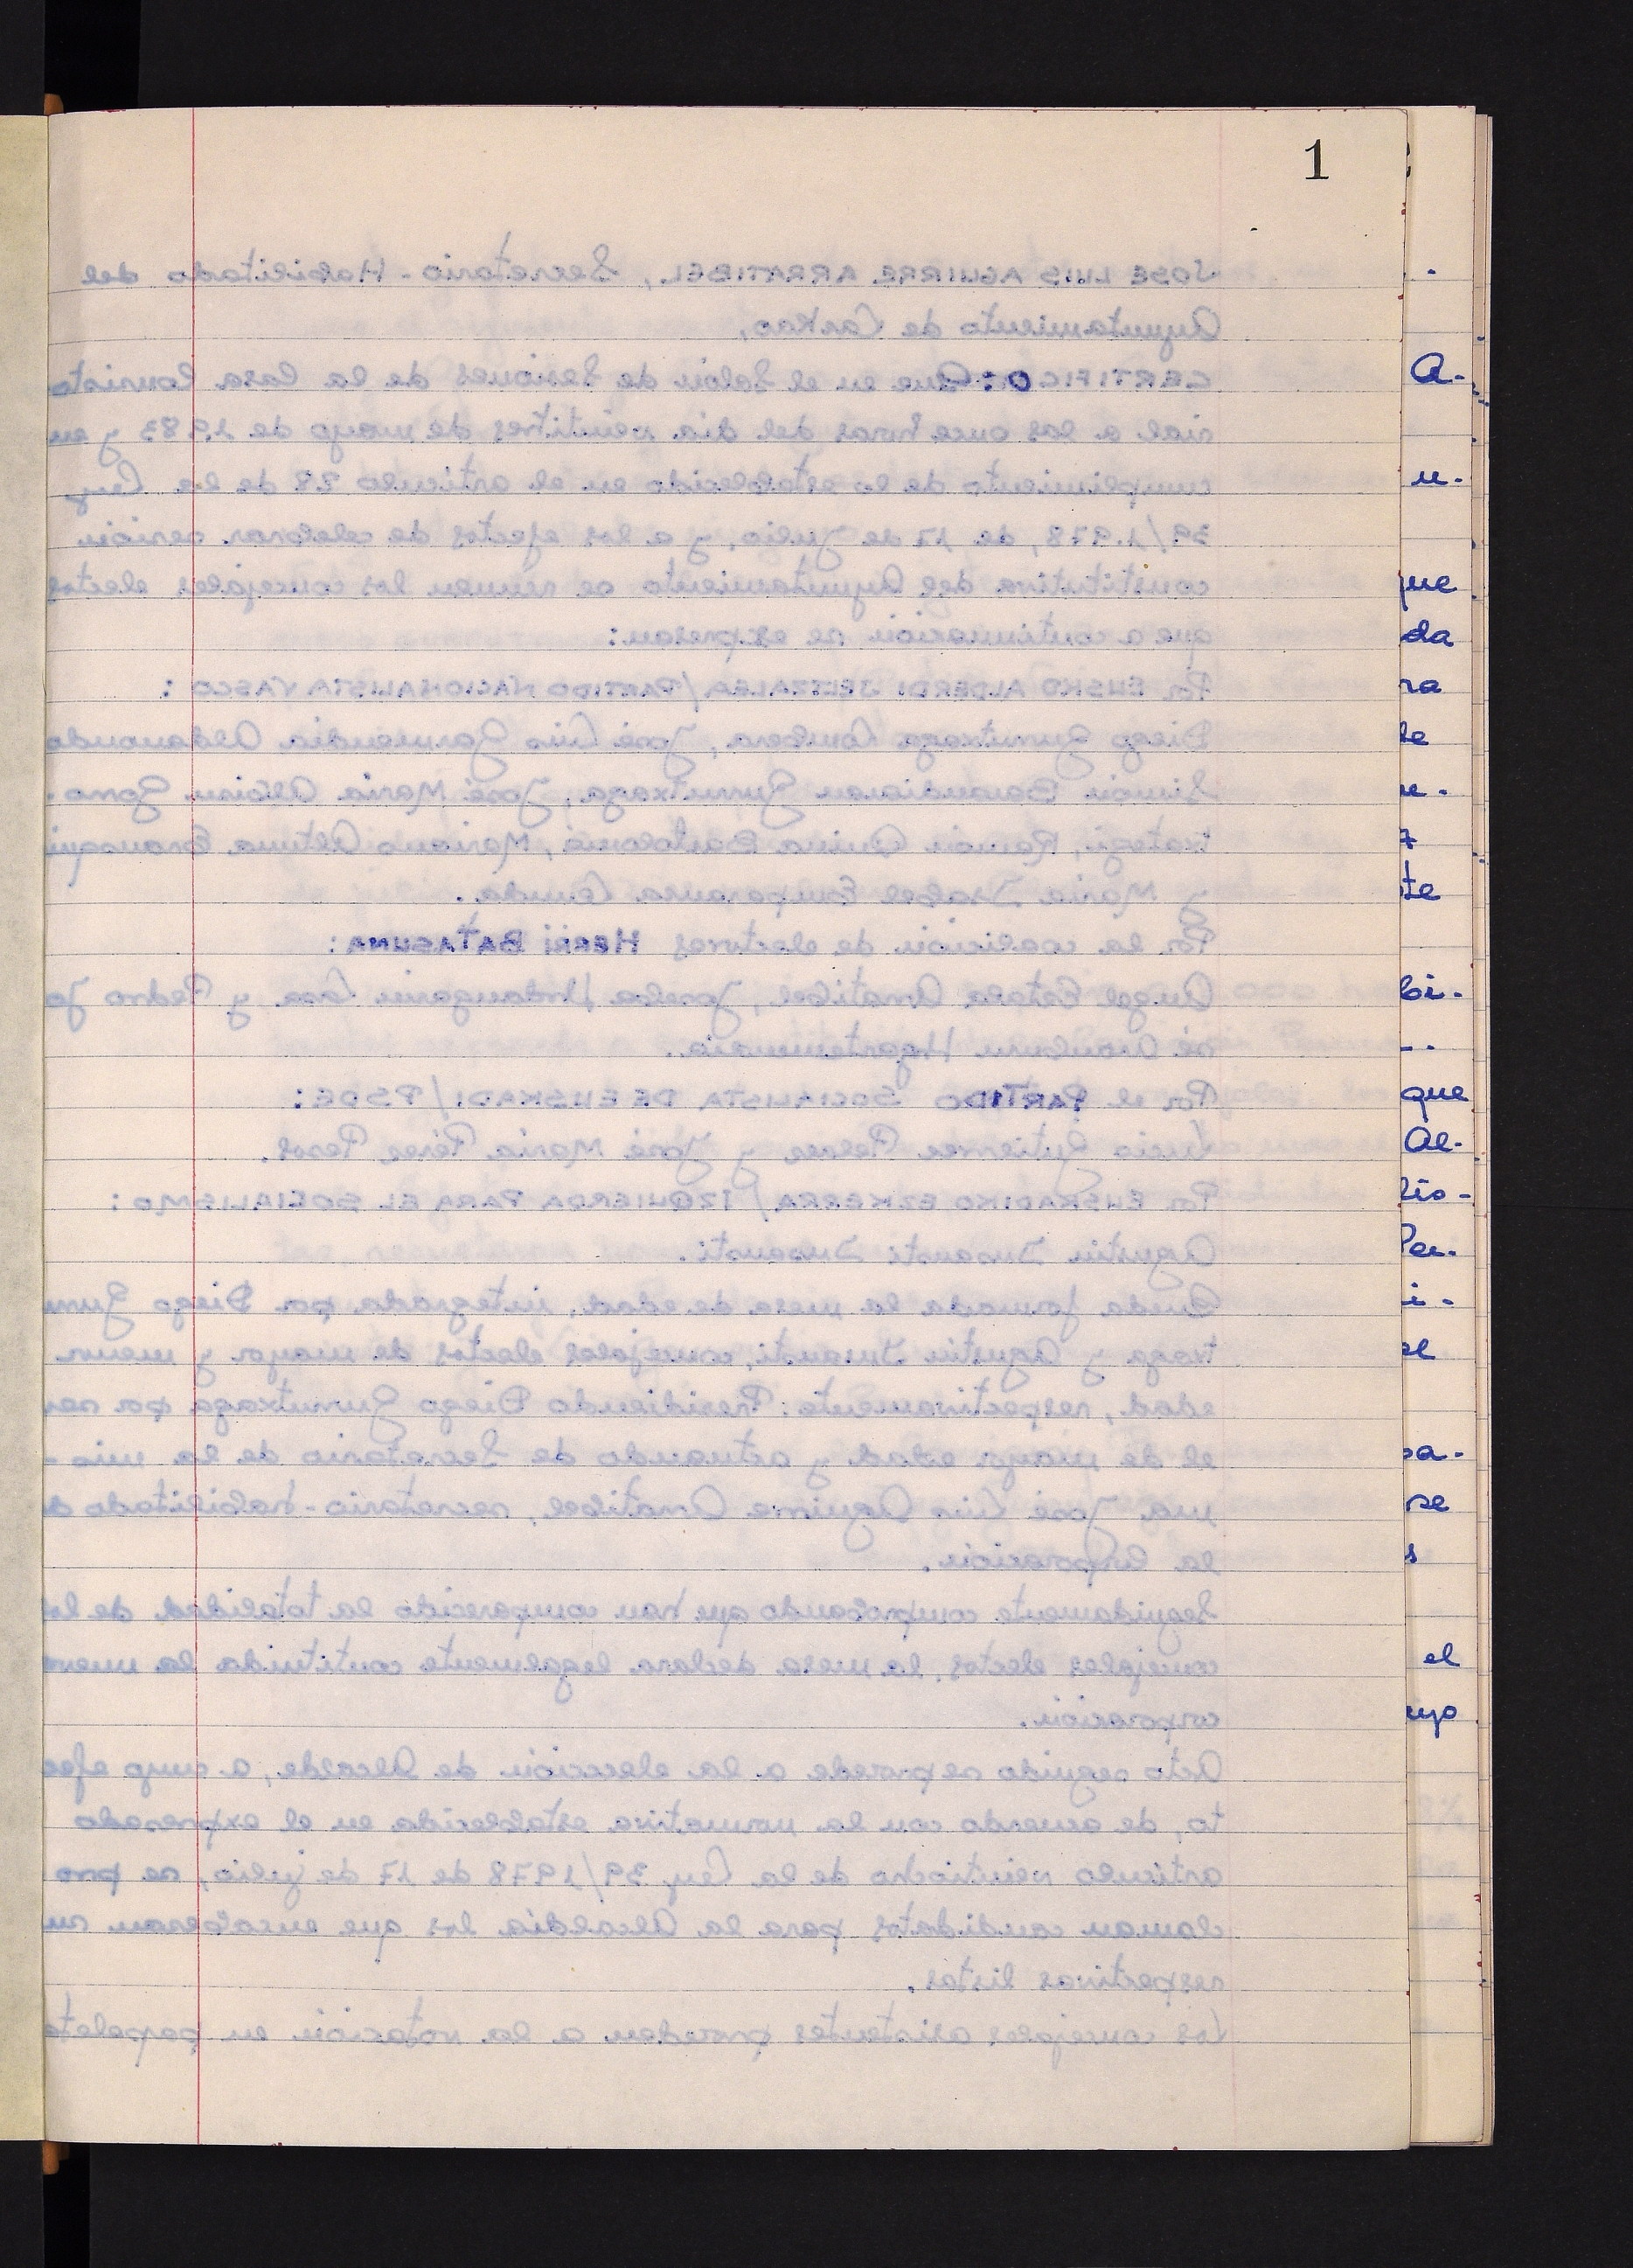 1
JOSE LUIS AGUIRRE ARRATIBEL, Secretario-Habilitado del
Ayuntamiento de Lazkao,
CERTIFICO: Que en el Salón de Sesiones de la Casa Consisto
rial a las once horas del dia veintitres de mayo de 1.983 y en
cumplimiento de lo establecido en el articulo 28 de la Ley
39/1.978, de 17 de Julio, y a los efectos de celebrar sesión
constitutiva del Ayuntamiento se reunen los concejales electos
que a continuación se expresan:
Por EUSKO ALDERDI JELTZALEA/PARTIDO NACIONALISTA VASCO:
Diego Yurritxaga, José Luis Garmendia Aldanondo
Simón Barandiaran Yurritxaga, José Maria Albisu Goro-
txategi, Ramón Bartolomé, Mariano Altuna
y Maria Isabel Emparanza
Por la coalición de electores HERRI BATASUNA:
Angel Arratibel, Joseba Urdangarin Lasa y Pedro Jo
sé Aramburu
Por el PARTIDO SOCIALISTA DE EUSKADI/PSOE:
Lucio Gutierrez y José Maria Pérez
Por EUSKADIKO EZKERRA/IZQUIERDA PARA EL SOCIALISMO:
Agustin Insausti Insausti.
Queda formada la mesa de edad, integrada por Diego Yurri
txaga y Agustin Insausti, concejales electos de mayor y menor
edad, respectivamente: Presidiendo Diego Yurritxaga por ser
el de mayor edad y actuando de Secretario de la mis-
ma José Luis Aguirre Arratibel, secretario-habilitado d
la Corporación.
Seguidamente comprobando que han comparecido la totalidad de los
concejales electos, la mesa declara legalmente contituida la nueva
corporación.
Acto seguido se procede a la elección de Alcalde, a cuyo efec
to, de acuerdo con la normativa establecida en el expresado
articulo veintiocho de la Ley 39/1978 de 17 de julio, se pro
claman candidatos para la Alcaldía los que encabezan su
respectivas listas.
Los concejales asistentes proceden a la votación en papeleta
A-
u-
que
da
ra
le
te
bi-
que
Al-
lis-
Per-
i-
el
sa-
se
s
el
uyo